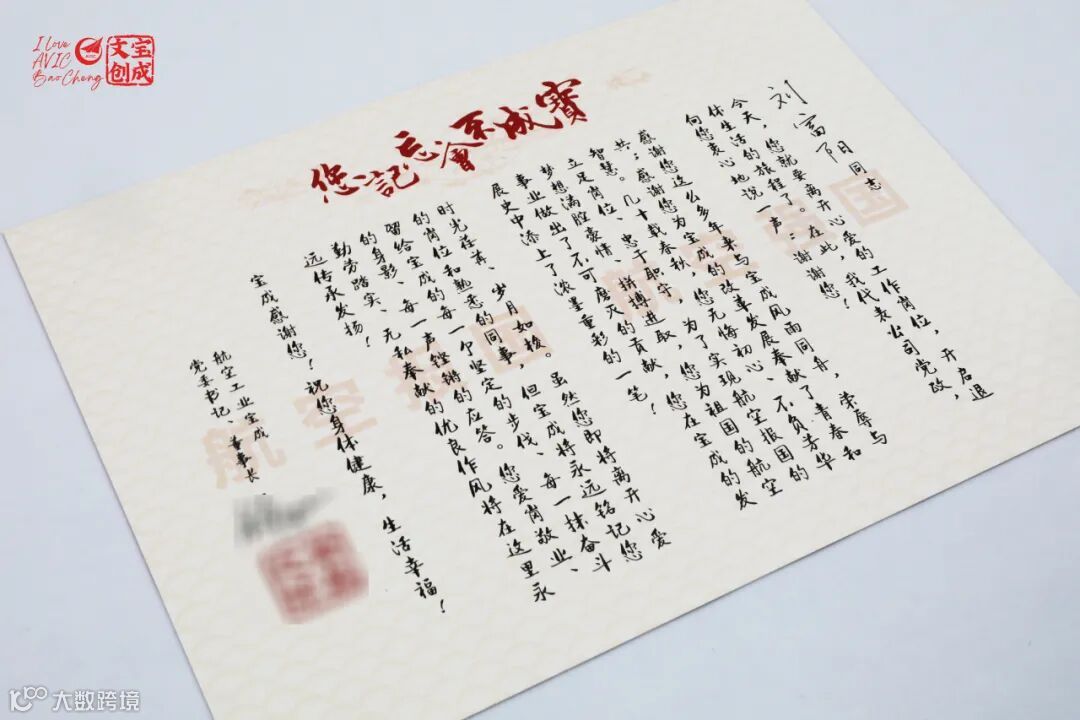 I love
AVIC
BaoCheng
AVIC
宝成
文创
寶成不會忘記您
刘富阳同志
今天，您就要离开心爱的工作岗位，开启退
休生活的旅程了。在此，我代表公司党政，
向您衷心地说一声：谢谢您！
感谢您这么多年来与宝成风雨同舟、荣辱与
共；感谢您为宝成的改革发展奉献了青春和
智慧。几十载春秋，您无悔初心、不负芳华
立足岗位、忠于职守，为了实现航空报国的
梦想满腔豪情、拼搏进取，您为祖国的航空
事业做出了不可磨灭的贡献，您在宝成的发
展史中添上了浓墨重彩的一笔！
时光荏苒、岁月如梭。虽然您即将离开心爱
的岗位和熟悉的同事，但宝成将永远铭记您
留给宝成的每一个坚定的步伐、每一抹奋斗
的身影、每一声铿锵的应答。您爱岗敬业、
勤劳踏实、无私奉献的优良作风将在这里永
远传承发扬！
宝成感谢您！祝您身体健康，生活幸福！
航空工业宝成
党委书记、董事长、
航空报国 航空强国
大数跨境